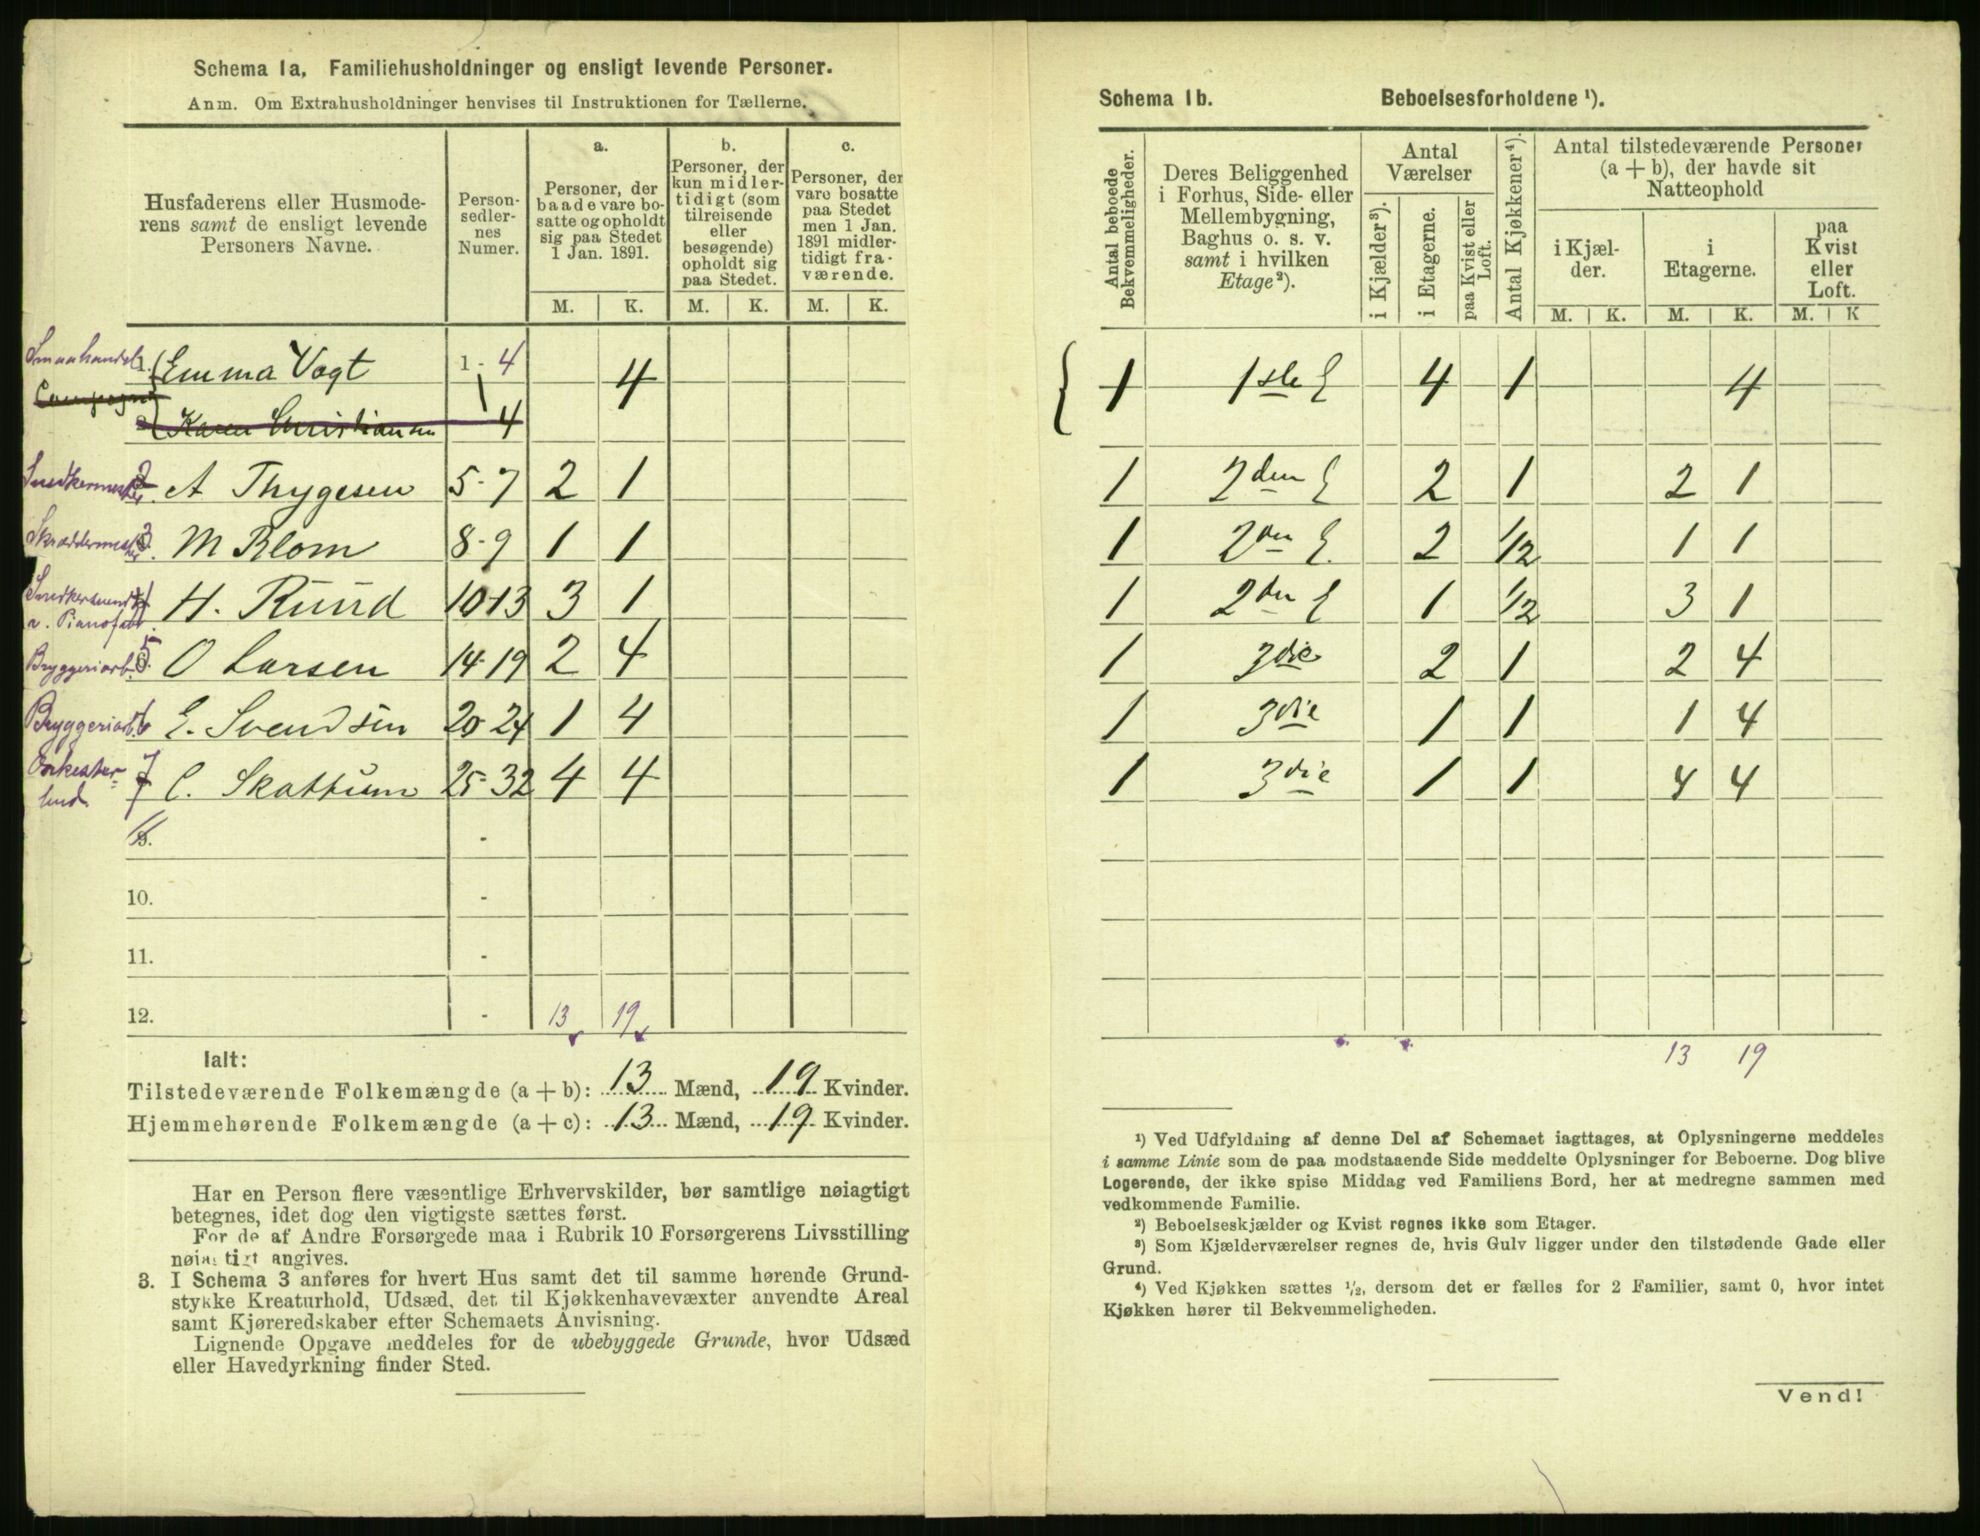 Schema 1a. Familiehusholdninger og ensligt levende Personer.
Anm. Om Extrahusholdninger henvises til Instruktionen for Tællerne.
Husfaderens eller Husmoderens samt de ensligt levende Personers Navne.
Personsedlernes Numer.
a. Personer, der baade vare bosatte og opholdt sig paa Stedet 1 Jan. 1891.
b. Personer, der kun midlertidigt (som tilreisende eller besøgende) opholdt sig paa Stedet.
c. Personer, der vare bosatte paa Stedet men 1 Jan. 1891 midlertidigt fraværende.
M. K. M. K. M. K.
Smaahandel 1. Emma Vogt 1 - 4 4
Karen Christiansen 4
Snedkermester 2 A Thygesen 5-7 2 1
Skræddermester 3 M Blom 8-9 1 1
4 H. Ruud 10-13 3 1
Bryggeriarb. 5 O Larsen 14-19 2 4
Bryggeriarb. 6 E. Svendsen 20-24 1 4
Orkester- 7 C. Skattum 25-32 4 4
9. -
10. -
11. -
12. - 13 19
Ialt:
Tilstedeværende Folkemængde (a + b): 13 Mænd, 19 Kvinder.
Hjemmehørende Folkemængde (a + c): 13 Mænd, 19 Kvinder.
Har en Person flere væsentlige Erhvervskilder, bør samtlige nøiagtigt
betegnes, idet dog den vigtigste sættes først.
For de af Andre Forsørgede maa i Rubrik 10 Forsørgerens Livsstilling
nøiagtigt angives.
3. I Schema 3 anføres for hvert Hus samt det til samme hørende Grund-
stykke Kreaturhold, Udsæd, det til Kjøkkenhavevæxter anvendte Areal
samt Kjøreredskaber efter Schemaets Anvisning.
Lignende Opgave meddeles for de ubebyggede Grunde, hvor Udsæd
eller Havedyrkning finder Sted.
Schema 1b. Beboelsesforholdene ¹).
Antal beboede Bekvemmeligheder.
Deres Beliggenhed i Forhus, Side- eller Mellembygning, Baghus o. s. v. samt i hvilken Etage²).
Antal Værelser
i Kjælder³).
i Etagerne.
paa Kvist eller Loft.
Antal Kjøkkener⁴).
Antal tilstedeværende Personer (a + b), der havde sit Natteophold
i Kjælder.
i Etagerne.
paa Kvist eller Loft.
M. K. M. K. M. K
1 1ste E 4 1 4
1 2den E 2 1 2 1
1 2den E. 2 1/2 1 1
1 2den E 1 1/2 3 1
1 3die 2 1 2 4
1 3die 1 1 1 4
1 3die 1 1 4 4
13 19
¹) Ved Udfyldning af denne Del af Schemaet iagttages, at Oplysningerne meddeles
i samme Linie som de paa modstaaende Side meddelte Oplysninger for Beboerne. Dog blive
Logerende, der ikke spise Middag ved Familiens Bord, her at medregne sammen med
vedkommende Familie.
²) Beboelseskjælder og Kvist regnes ikke som Etager.
³) Som Kjælderværelser regnes de, hvis Gulv ligger under den tilstødende Gade eller
Grund.
⁴) Ved Kjøkken sættes 1/2, dersom det er fælles for 2 Familier, samt 0, hvor intet
Kjøkken hører til Bekvemmeligheden.
Vend!